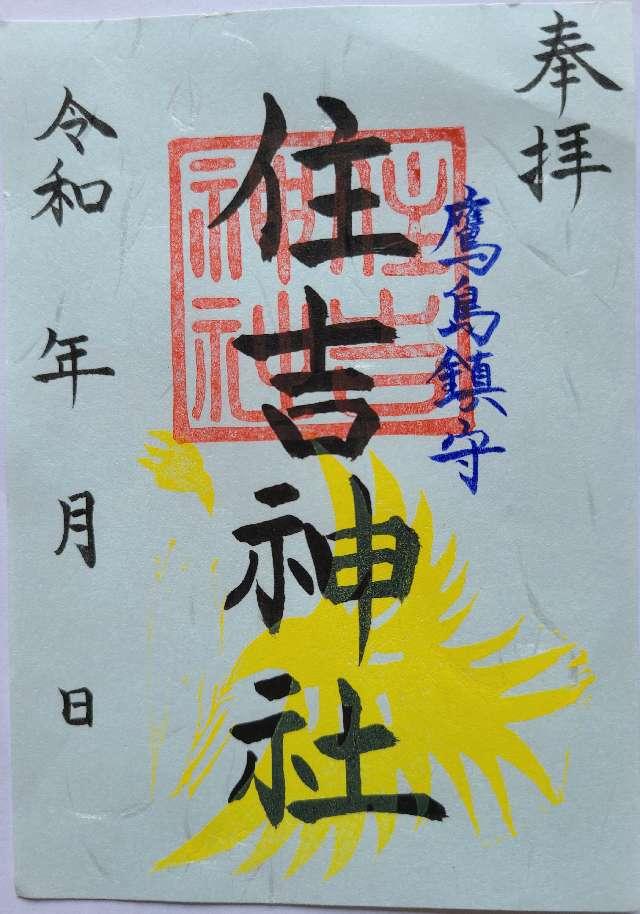 奉拝
鷹島鎮守
住吉神社
住吉
神社
令和 年 月 日